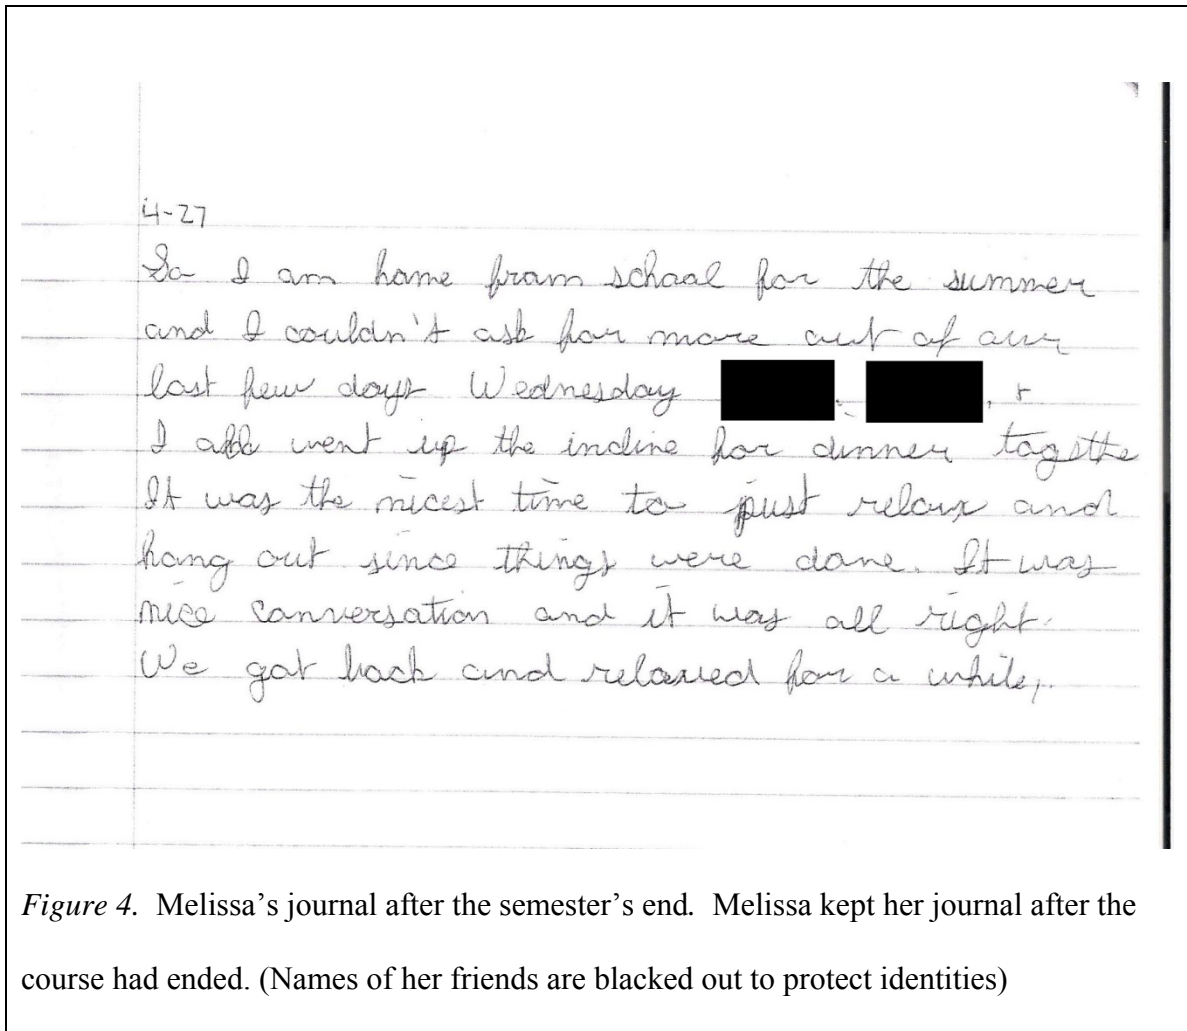 4-27
So I am home from school for the summer
and I couldn't ask for more out of our
last few days Wednesday , , +
I all went up the incline for dinner togethe
It was the nicest time to just relax and
hang out since things were done. It was
nice conversation and it was all right.
We got back and relaxed for a while,.
Figure 4. Melissa's journal after the semester's end. Melissa kept her journal after the
course had ended. (Names of her friends are blacked out to protect identities)